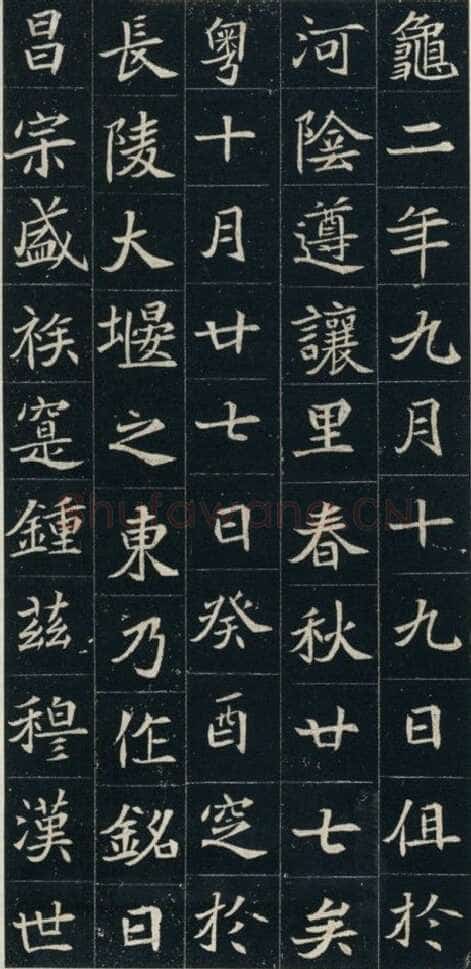 龜二年九月十九日俎於
河陰遵讓里春秋廿七矣
粵十月廿七日癸酉窆於
長陵大堰之東乃作銘曰
昌宗盛族寔鍾茲穆漢世
Shufawang.CN